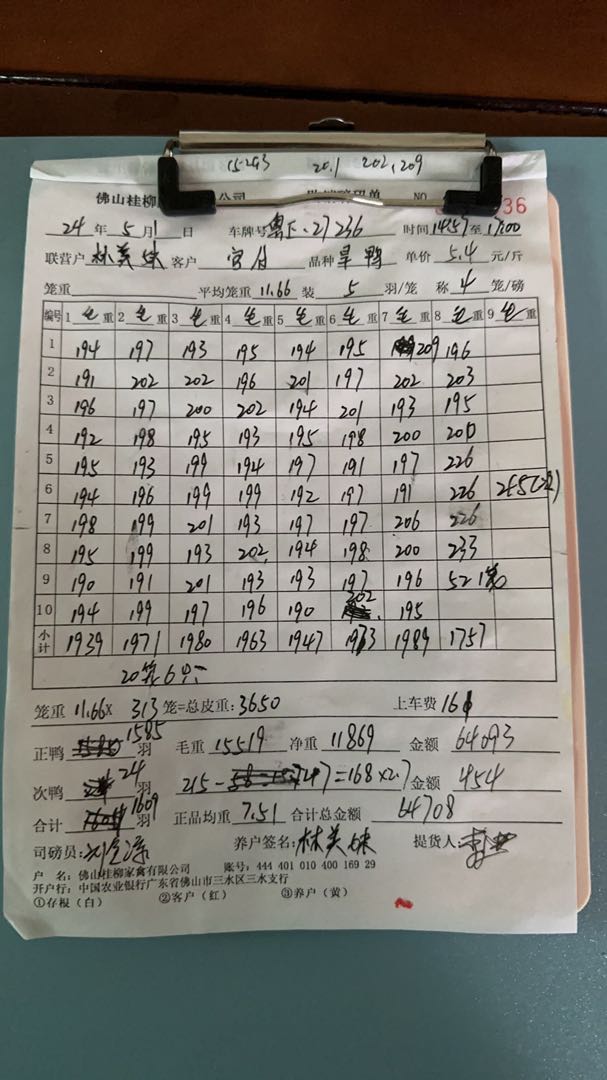 15-293 20.1 202,209
佛山桂柳 公司 NO 36
24 年 5 月 1 日 车牌号 粤E.27236 时间 1457 至 17:00
联营户 林美妹 客户 品种 旱鸭 单价 5.4 元/斤
笼重 平均笼重 11.66 装 5 羽/笼 称 4 笼/磅
编号 1 毛重 2 毛重 3 毛重 4 毛重 5 毛重 6 毛重 7 毛重 8 毛重 9 毛重
1 194 197 193 195 194 195 209 196
2 191 202 202 196 201 197 202 203
3 196 197 200 202 194 201 193 195
4 192 198 195 193 195 198 200 200
5 195 193 199 194 197 191 197 226
6 194 196 199 199 192 197 191 226
7 198 199 201 193 197 197 206 226
8 195 199 193 202 194 198 200 233
9 190 191 201 193 193 197 196 52 1笼
10 194 199 197 196 190 202 195
小计 1939 1971 1980 1963 1947 1973 1989 1757
20笼6只
笼重 11.66 × 313 笼=总皮重: 3650 上车费 161
正鸭 1585 羽 毛重 15519 净重 11869 金额 64093
次鸭 24 羽 215- 47=168×2.7 金额 454
合计 1609 羽 正品均重 7.51 合计总金额 64708
司磅员: 养户签名: 林美妹 提货人:
户 名: 佛山桂柳家禽有限公司 账号: 444 401 010 400 169 29
开户行: 中国农业银行广东省佛山市三水区三水支行
①存根(白) ②客户(红) ③养户(黄)